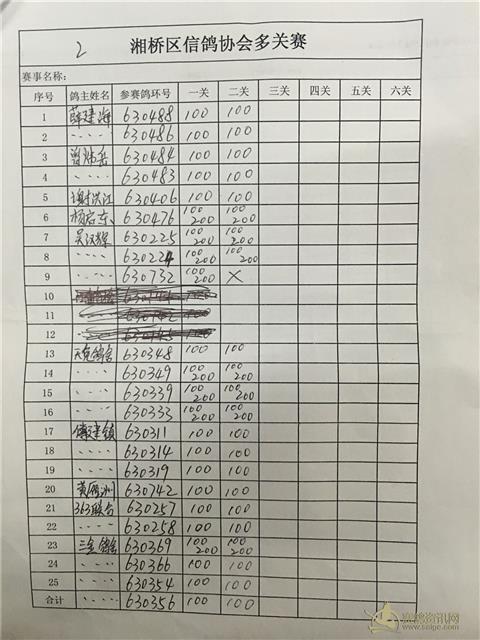 2 湘桥区信鸽协会多关赛
赛事名称:
序号 鸽主姓名 参赛鸽环号 一关 二关 三关 四关 五关 六关
1 薛建海 630488 100 100
2 〃 630486 100 100
3 曾炳岳 630484 100 100
4 〃 630483 100 100
5 谢洪江 630406 100 100
6 杨启东 630476 100 200 100 200
7 吴汉辉 630225 100 200 100 200
8 〃 630224 100 200 100 200
9 〃 630732 100 200 ×
10
11
12
13 天龙鸽舍 630348 100 100
14 〃 630349 100 200 100 200
15 〃 630339 100 200 100 200
16 〃 630333 100 200 100 200
17 傅建镇 630311 100 100
18 〃 630314 100 100
19 〃 630319 100 100
20 黄 洲 630742 100 100
21 363联合 630257 100 100
22 〃 630258 100 100
23 三金鸽舍 630369 100 200 100 200
24 〃 630366 100 100
25 〃 630354 100 100
合计 〃 630356 100 100
赛鸽资讯网
www.saige.com